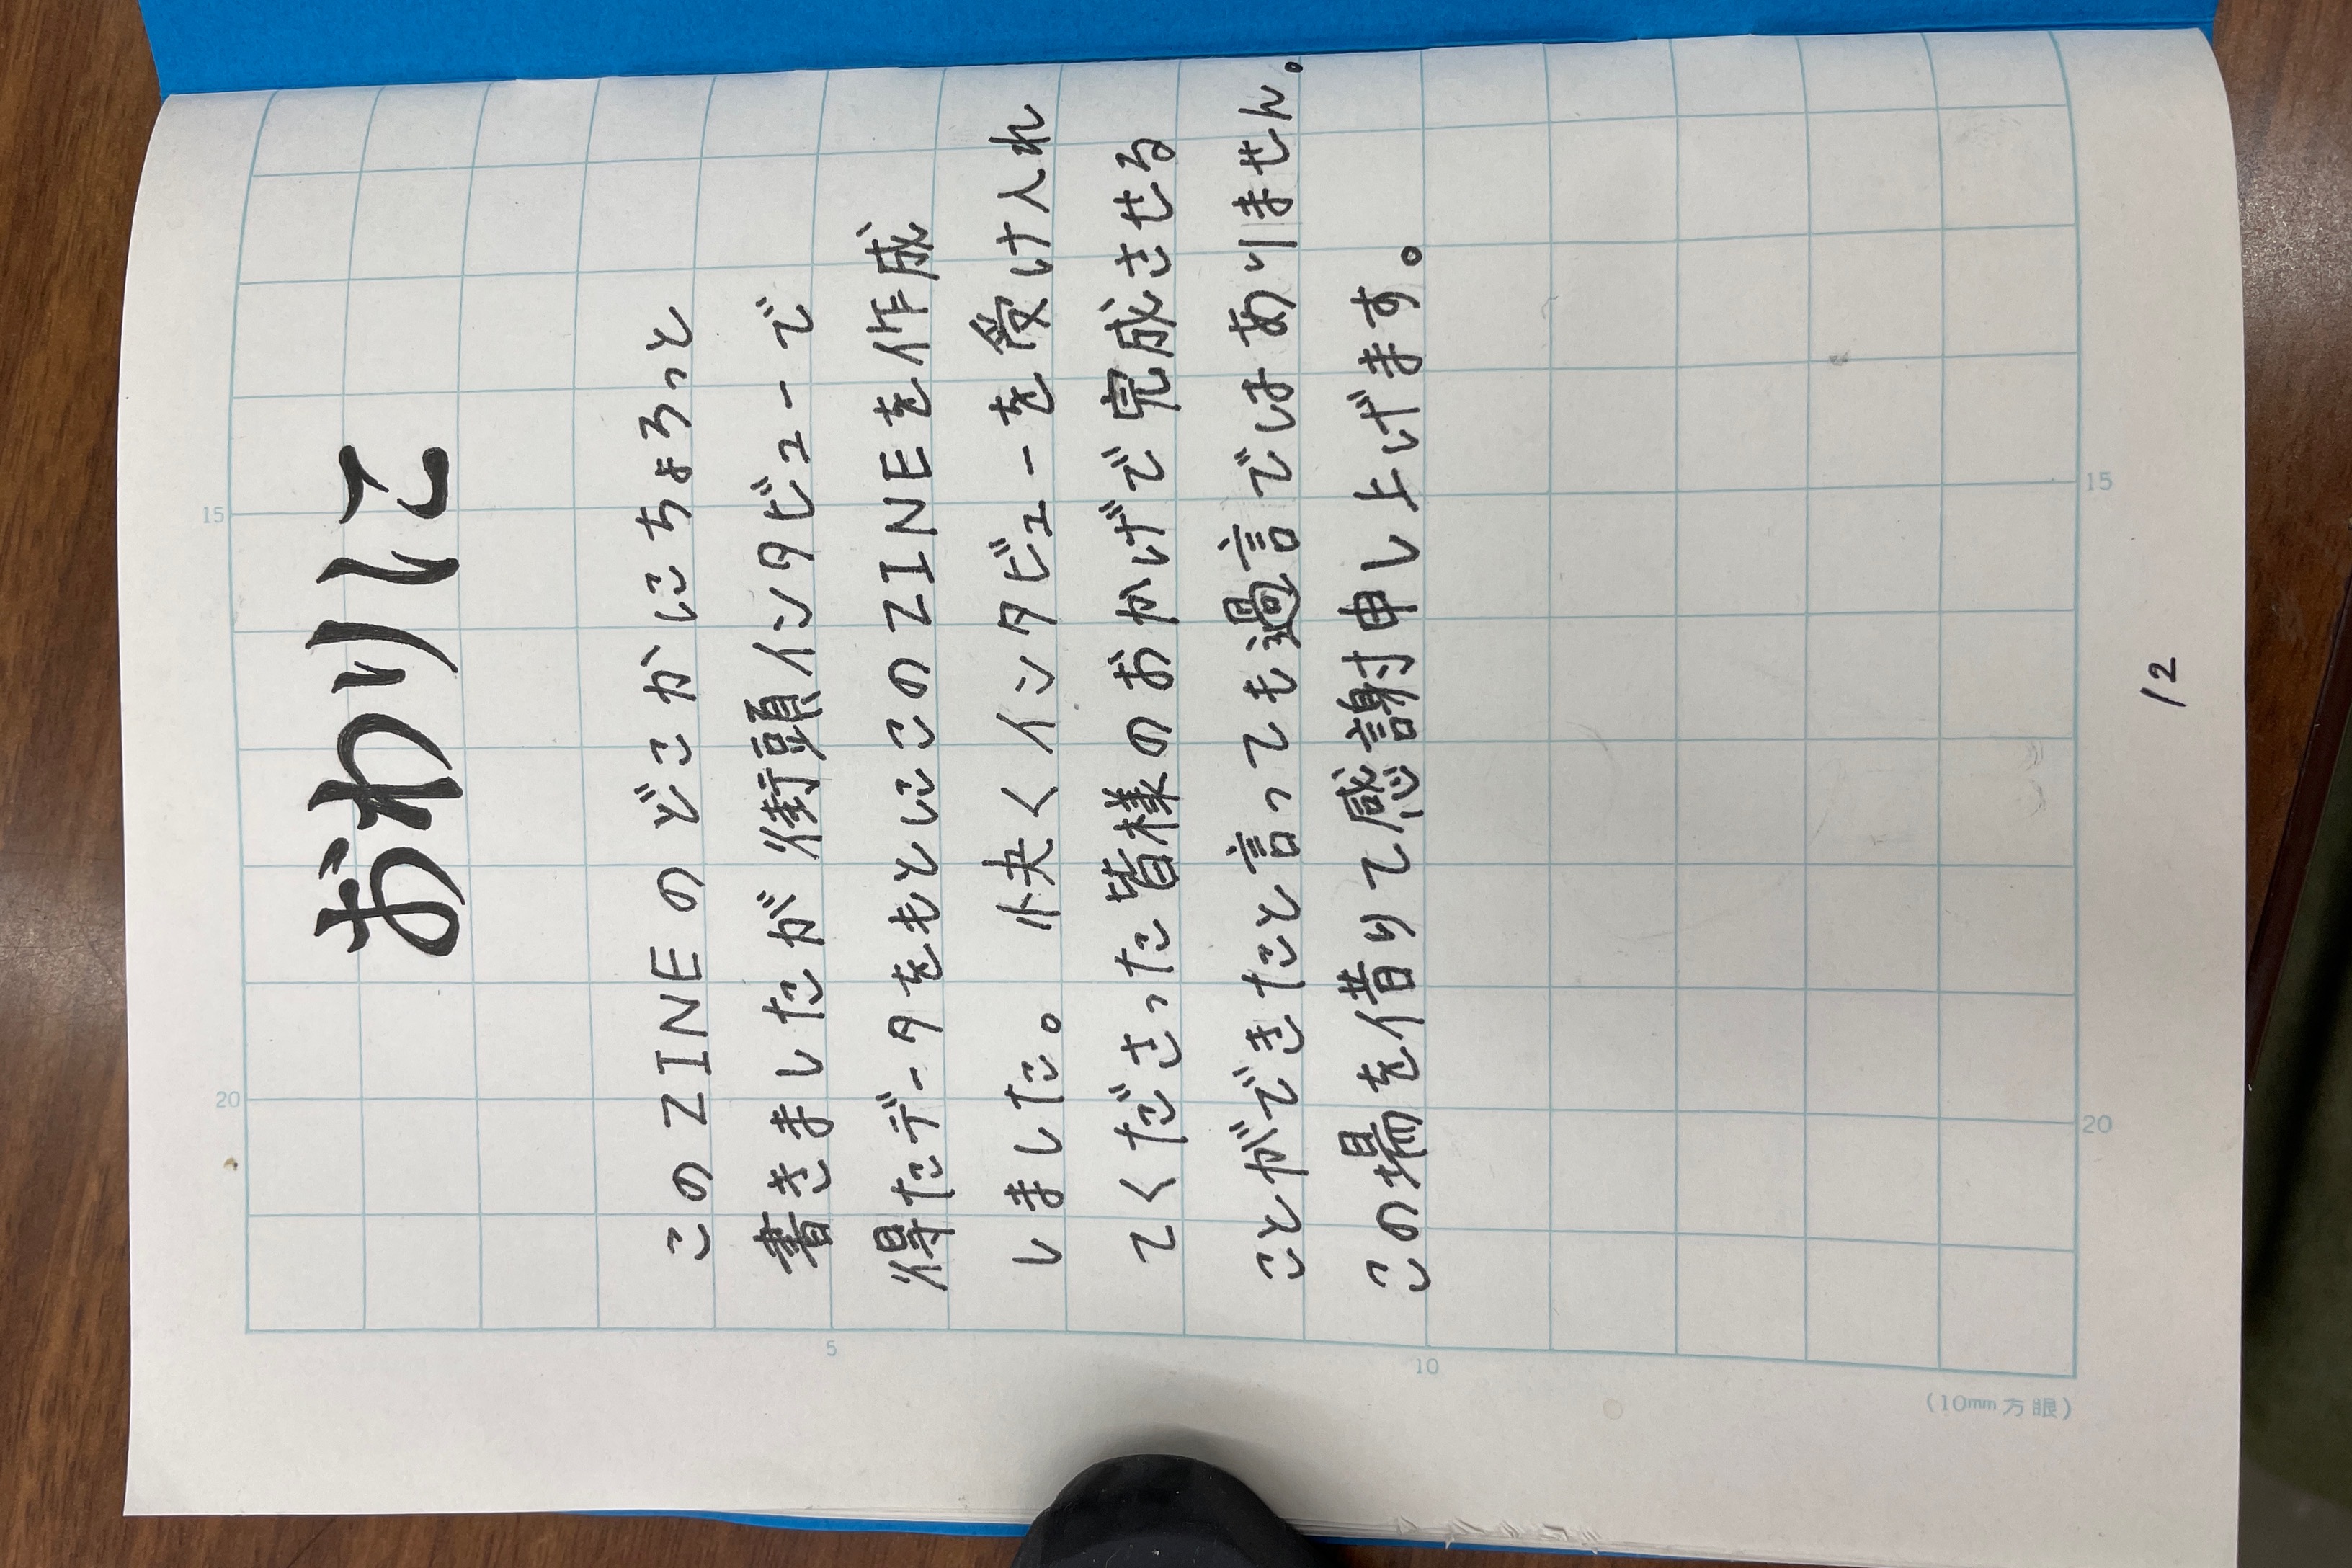 20
15
おわりに
このZINEのどこかにちょろっと
書きましたが街頭インタビューで
5
得たデータをもとにこのZINEを作成
しました。 快くインタビューを受け入れ
てくださった皆様のおかげで完成させる
ことができたと言っても過言ではありません。
この場を借りて感謝申し上げます。
10
(10mm方眼)
20
15
12